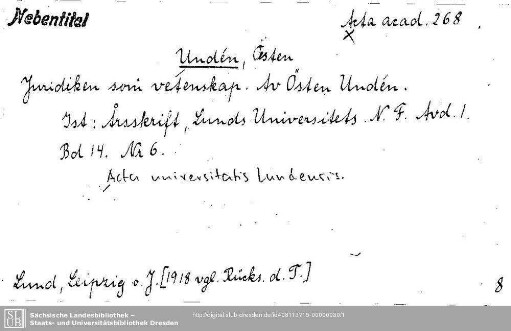 Nebentitel
Acta acad. 268
Undén, Östen
Juridiken som vetenskap. Av Östen Undén.
Ist: Årsskrift, Lunds Universitets. N. F. Avd. 1.
Bd 14. Nr 6.
Acta universitatis Lundensis.
Lund, Leipzig o. J. [1918 vgl. Rücks. d. T.]
8
Sächsische Landesbibliothek –
Staats- und Universitätsbibliothek Dresden